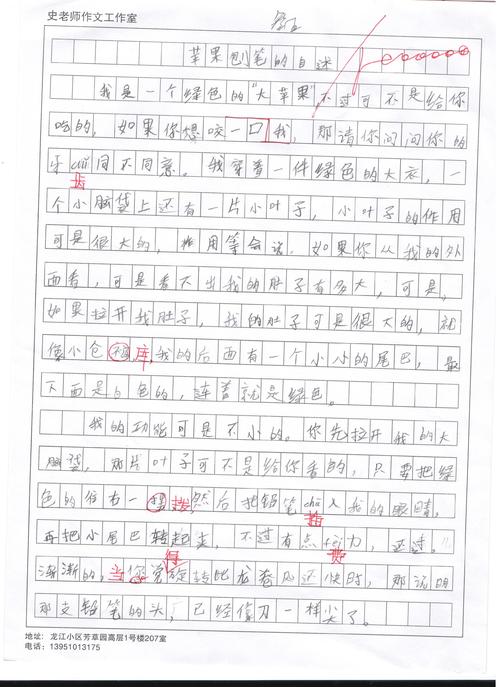 史老师作文工作室
苹果刨笔的自述
我是一个绿色的“大苹果”，不过可不是给你
吃的，如果你想咬一口我，那请你问问你的
牙chǐ同不同意。我穿着一件绿色的大衣，一
齿
个小脑袋上还有一片小叶子，小叶子的作用
可是很大的，作用等会说。如果你从我的外
面看，可是看不出我的肚子有多大，可是，
如果拉开我肚子，我的肚子可是很大的，就
像小仓库，我的后面有一个小小的尾巴，最
下面是白色的，连着就是绿色。
我的功能可是不小的。你先拉开我的大
脑袋，那片叶子可不是给你看的，只要把绿
色的往右一拨然后把铅笔chā入我的眼睛，
插
再把小尾巴转起来，不过有点fèi力，还过
得 费
渐渐的，当你觉旋转比龙卷风还快时，那说明
那支铅笔的头，已经像刀一样尖了。
地址：龙江小区芳草园高层1号楼207室
电话：13951013175